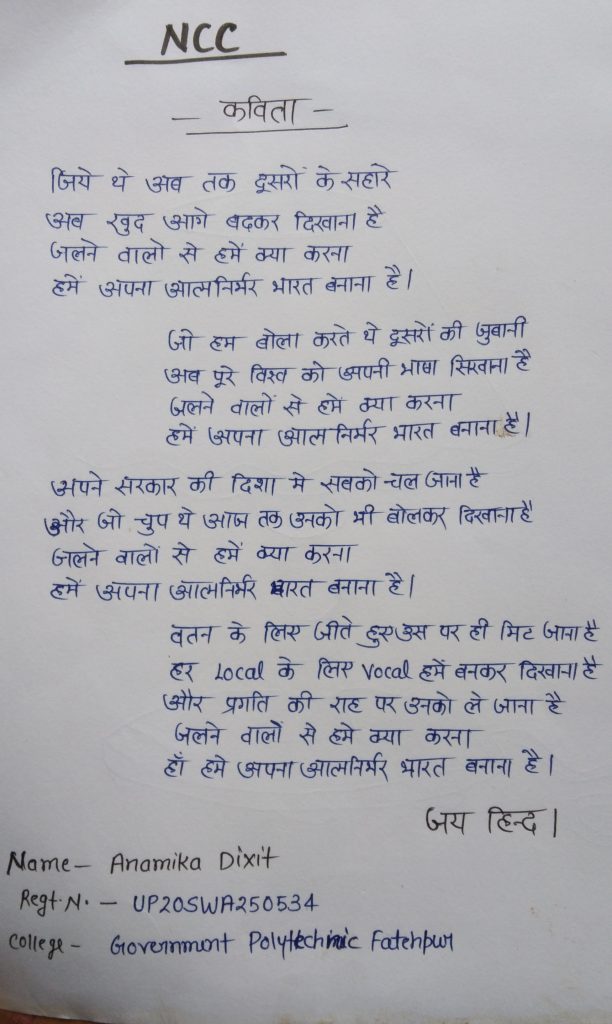 NCC
- कविता -
जिये थे अब तक दूसरों के सहारे
अब खुद आगे बढकर दिखाना है
जलने वालो से हमें क्या करना
हमें अपना आत्मनिर्भर भारत बनाना है।
जो हम बोला करते थे दूसरों की जुबानी
अब पूरे विश्व को अपनी भाषा सिखाना है
जलने वालों से हमे क्या करना
हमें अपना आत्मनिर्भर भारत बनाना है।
अपने सरकार की दिशा मे सबको चल जाना है
और जो चुप थे आज तक उनको भी बोलकर दिखाना है
जलने वालों से हमें क्या करना
हमें अपना आत्मनिर्भर भारत बनाना है।
वतन के लिए जीते हुए उस पर ही मिट जाना है
हर Local के लिए Vocal हमें बनकर दिखाना है
और प्रगति की राह पर उनको ले जाना है
जलने वालों से हमे क्या करना
हाँ हमे अपना आत्मनिर्भर भारत बनाना है।
जय हिन्द।
Name- Anamika Dixit
Regt.N. - UP20SWA250534
College- Government Polytechnic Fatehpur